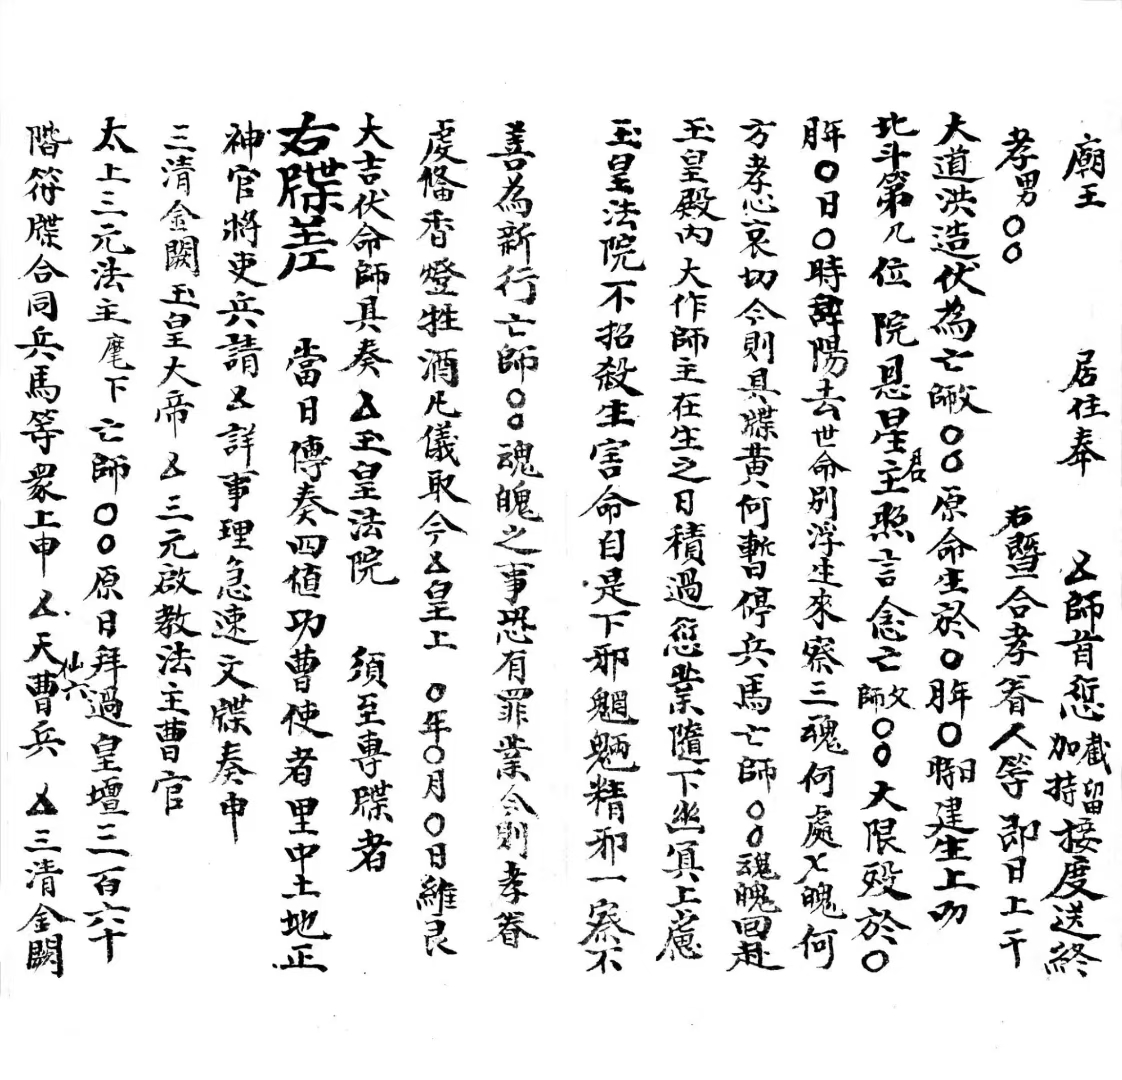 廟王　居住奉　厶師首愆截留加持接度送終
孝男〇〇　右暨合孝眷人等即日上干
大道洪造伏為亡師父〇〇原命生於〇年〇月〇日時建生上叨
北斗第几位　院恩星主君照言念亡師父〇〇大限歿於〇
年〇月〇日〇時辭陽去世命別浮生來察三魂何處七魄何
方孝心哀切今則具牒黄何暫停兵馬亡師〇〇魂魄回赴
玉皇殿内大作師主在生之日積過愆業隨下幽冥上慮
玉皇法院不招殺生害命自是下邪魍魎精邪一察不
善為新行亡師〇〇魂魄之事恐有罪業今則孝眷
虔俻香燈牲酒凡儀取今厶皇上　〇年〇月〇日維良
大吉伏命師具奏厶玉皇法院　須至專牒者
右牒差　當日傳奏四值功曹使者里中土地正
神官將吏兵請厶詳事理急速文牒奏申
三清金闕玉皇大帝厶三元啟教法主曹官
太上三元法主麾下亡師〇〇原日拜過皇壇三百六十
階符牒合同兵馬等衆上申厶天仙六曹兵厶三清金闕